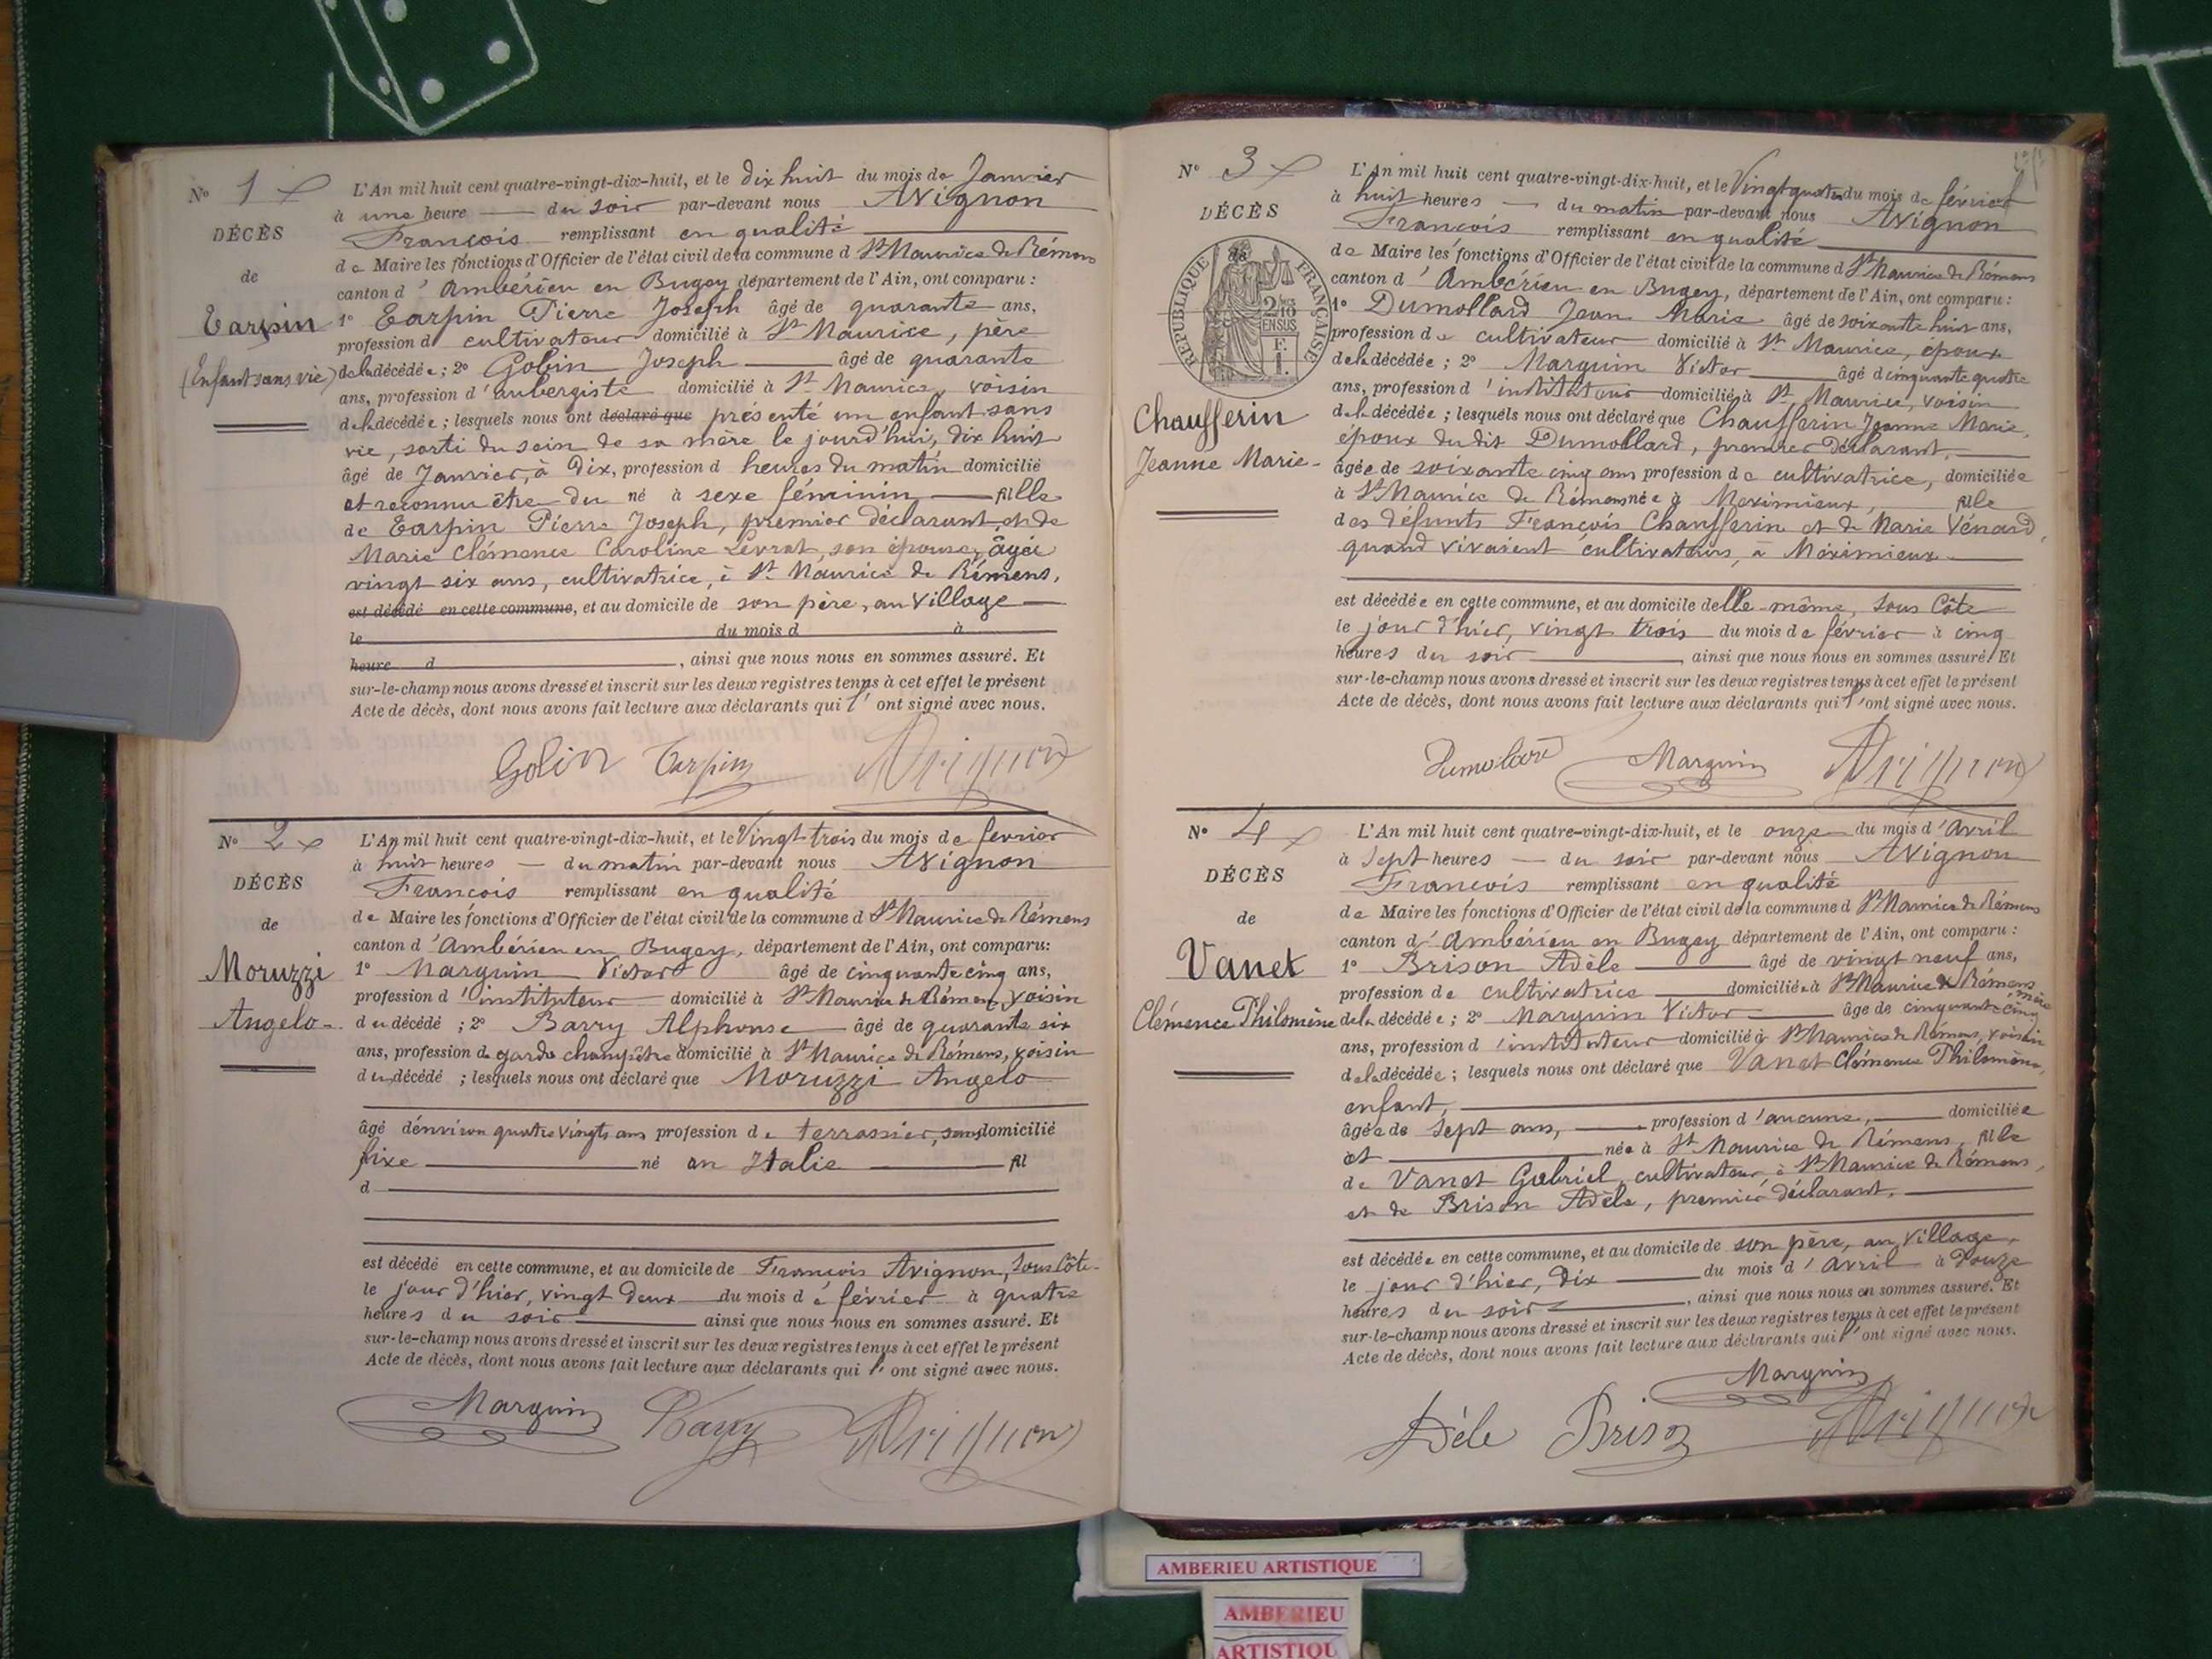 N° 1
DÉCÈS
de
Tarpin
(Enfant sans vie)
L'An mil huit cent quatre-vingt-dix-huit, et le dix huit du mois de Janvier
à une heure du soir par-devant nous Avignon
François remplissant en qualité
de Maire les fonctions d'Officier de l'état civil de la commune d St Maurice de Rémens
canton d'Ambérieu en Bugey département de l'Ain, ont comparu :
1° Tarpin Pierre Joseph âgé de quarante ans,
profession d cultivateur domicilié à St Maurice, père
de la décédée ; 2° Gobin Joseph âgé de quarante
ans, profession d'aubergiste domicilié à St Maurice, voisin
de la décédée ; lesquels nous ont déclaré que présenté un enfant sans
vie, sorti du sein de sa mère le jourd'hui, dix huit
âgé de Janvier, à dix, profession d heures du matin domicilié
et reconnu être du né à sexe féminin, fille
de Tarpin Pierre Joseph, premier déclarant, et de
Marie Clémence Caroline Levrat, son épouse, âgée
vingt six ans, cultivatrice, à St Maurice de Rémens,
est décédé en cette commune, et au domicile de son père, au village
le du mois d à
heure d , ainsi que nous nous en sommes assuré. Et
sur-le-champ nous avons dressé et inscrit sur les deux registres tenus à cet effet le présent
Acte de décès, dont nous avons fait lecture aux déclarants qui l'ont signé avec nous.
Gobin Tarpin Avignon
N° 2
DÉCÈS
de
Moruzzi
Angelo
L'An mil huit cent quatre-vingt-dix-huit, et le Vingt trois du mois de février
à huit heures du matin par-devant nous Avignon
François remplissant en qualité
de Maire les fonctions d'Officier de l'état civil de la commune d St Maurice de Rémens
canton d'Ambérieu en Bugey, département de l'Ain, ont comparu :
1° Marguin Victor âgé de cinquante cinq ans,
profession d'instituteur domicilié à St Maurice de Rémens, voisin
du décédé ; 2° Barry Alphonse âgé de quarante six
ans, profession de garde champêtre domicilié à St Maurice de Rémens, voisin
du décédé ; lesquels nous ont déclaré que Moruzzi Angelo
âgé d'environ quatre vingts ans profession de terrassier, sans domicilié
fixe né en Italie fil
d
est décédé en cette commune, et au domicile de François Avignon, sous Côte
le jour d'hier, vingt deux du mois de février à quatre
heures du soir ainsi que nous nous en sommes assuré. Et
sur-le-champ nous avons dressé et inscrit sur les deux registres tenus à cet effet le présent
Acte de décès, dont nous avons fait lecture aux déclarants qui l'ont signé avec nous.
Marguin Barry Avignon
N° 3
DÉCÈS
de
RÉPUBLIQUE FRANÇAISE
2/10 EN SUS
Chaufferin
Jeanne Marie
L'An mil huit cent quatre-vingt-dix-huit, et le Vingt quatre du mois de février
à huit heures du matin par-devant nous Avignon
François remplissant en qualité
de Maire les fonctions d'Officier de l'état civil de la commune d St Maurice de Rémens
canton d'Ambérieu en Bugey, département de l'Ain, ont comparu :
1° Dumollard Jean Marie âgé de soixante huit ans,
profession de cultivateur domicilié à St Maurice, époux
de la décédée ; 2° Marguin Victor âgé d cinquante quatre
ans, profession d'instituteur domicilié à St Maurice, voisin
de la décédée ; lesquels nous ont déclaré que Chaufferin Jeanne Marie,
époux du dit Dumollard, premier déclarant,
âgée de soixante cinq ans profession de cultivatrice, domiciliée
à St Maurice de Rémens née à Meximieux, fille
des défunts François Chaufferin et de Marie Vénard,
quand vivaient cultivateurs, à Méximieux
est décédée en cette commune, et au domicile delle même, sous Côte
le jour d'hier, vingt trois du mois de février à cinq
heures du soir ainsi que nous nous en sommes assuré. Et
sur-le-champ nous avons dressé et inscrit sur les deux registres tenus à cet effet le présent
Acte de décès, dont nous avons fait lecture aux déclarants qui l'ont signé avec nous.
Dumolard Marguin Avignon
N° 4
DÉCÈS
de
Vanet
Clémence Philomène
L'An mil huit cent quatre-vingt-dix-huit, et le onze du mois d'avril
à sept heures du soir par-devant nous Avignon
François remplissant en qualité
de Maire les fonctions d'Officier de l'état civil de la commune d St Maurice de Rémens
canton d'Ambérieu en Bugey département de l'Ain, ont comparu :
1° Brison Adèle âgé de vingt neuf ans,
profession de cultivatrice domiciliée à St Maurice de Rémens, mère
de la décédée ; 2° Marguin Victor âge de cinquante cinq
ans, profession d'instituteur domicilié à St Maurice de Rémens, voisin
de la décédée ; lesquels nous ont déclaré que Vanet Clémence Philomène,
enfant,
âgée de sept ans, profession d'aucune, domiciliée
et née à St Maurice de Rémens, fille
de Vanet Gabriel, cultivateur, à St Maurice de Rémens,
et de Brison Adèle, premier déclarant,
est décédée en cette commune, et au domicile de son père, au village,
le jour d'hier, dix du mois d'avril à douze
heures du soir , ainsi que nous nous en sommes assuré. Et
sur-le-champ nous avons dressé et inscrit sur les deux registres tenus à cet effet le présent
Acte de décès, dont nous avons fait lecture aux déclarants qui l'ont signé avec nous.
Marguin
Adèle Brison Avignon
AMBERIEU ARTISTIQUE
AMBERIEU
ARTISTIQU